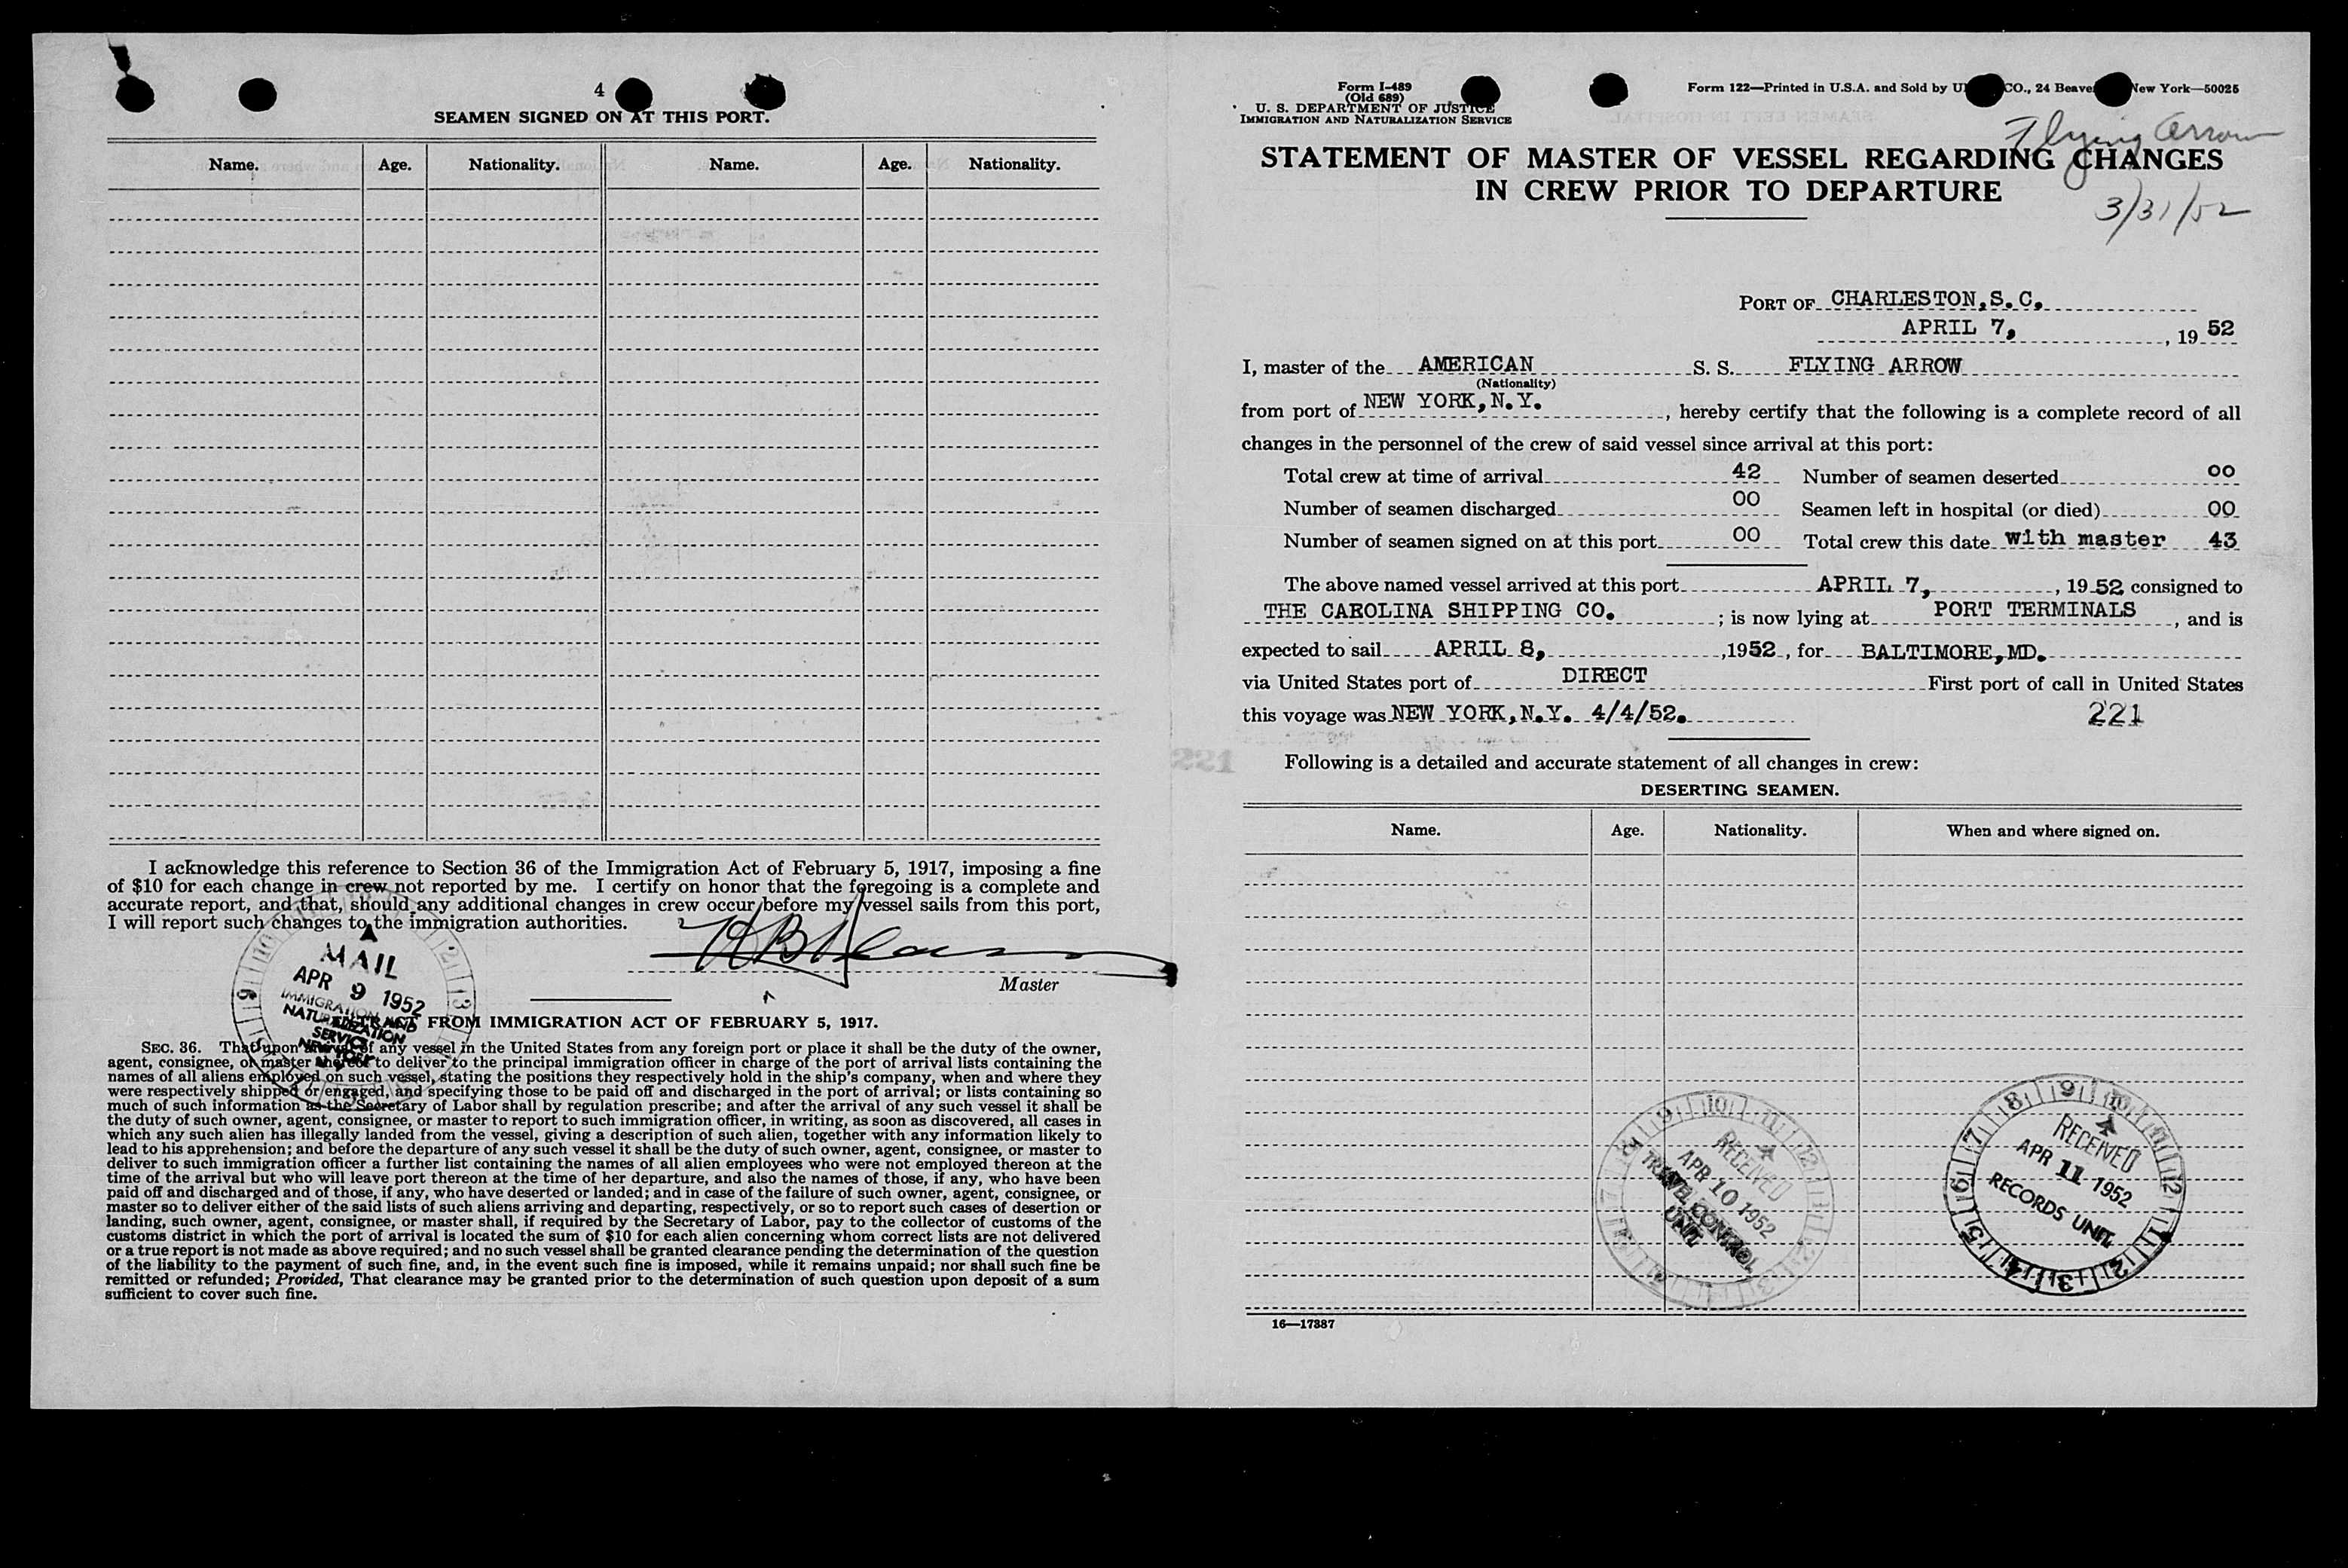 4
SEAMEN SIGNED ON AT THIS PORT.
Name. Age. Nationality. Name. Age. Nationality.
I acknowledge this reference to Section 36 of the Immigration Act of February 5, 1917, imposing a fine
of $10 for each change in crew not reported by me. I certify on honor that the foregoing is a complete and
accurate report, and that, should any additional changes in crew occur before my vessel sails from this port,
I will report such changes to the immigration authorities.
Master
MAIL
APR 9 1952
IMMIGRATION AND
NATURALIZATION
SERVICE
NEW YORK
FROM IMMIGRATION ACT OF FEBRUARY 5, 1917.
SEC. 36. That upon arrival of any vessel in the United States from any foreign port or place it shall be the duty of the owner,
agent, consignee, or master thereof to deliver to the principal immigration officer in charge of the port of arrival lists containing the
names of all aliens employed on such vessel, stating the positions they respectively hold in the ship's company, when and where they
were respectively shipped or engaged, and specifying those to be paid off and discharged in the port of arrival; or lists containing so
much of such information as the Secretary of Labor shall by regulation prescribe; and after the arrival of any such vessel it shall be
the duty of such owner, agent, consignee, or master to report to such immigration officer, in writing, as soon as discovered, all cases in
which any such alien has illegally landed from the vessel, giving a description of such alien, together with any information likely to
lead to his apprehension; and before the departure of any such vessel it shall be the duty of such owner, agent, consignee, or master to
deliver to such immigration officer a further list containing the names of all alien employees who were not employed thereon at the
time of the arrival but who will leave port thereon at the time of her departure, and also the names of those, if any, who have been
paid off and discharged and of those, if any, who have deserted or landed; and in case of the failure of such owner, agent, consignee, or
master so to deliver either of the said lists of such aliens arriving and departing, respectively, or so to report such cases of desertion or
landing, such owner, agent, consignee, or master shall, if required by the Secretary of Labor, pay to the collector of customs of the
customs district in which the port of arrival is located the sum of $10 for each alien concerning whom correct lists are not delivered
or a true report is not made as above required; and no such vessel shall be granted clearance pending the determination of the question
of the liability to the payment of such fine, and, in the event such fine is imposed, while it remains unpaid; nor shall such fine be
remitted or refunded; Provided, That clearance may be granted prior to the determination of such question upon deposit of a sum
sufficient to cover such fine.
Form I-489
(Old 689)
U. S. DEPARTMENT OF JUSTICE
IMMIGRATION AND NATURALIZATION SERVICE
Form 122—Printed in U.S.A. and Sold by CO., 24 New York—50025
Flying Arrow
STATEMENT OF MASTER OF VESSEL REGARDING CHANGES
IN CREW PRIOR TO DEPARTURE
3/31/52
PORT OF CHARLESTON, S. C.
APRIL 7, , 19 52
I, master of the AMERICAN S. S. FLYING ARROW
(Nationality)
from port of NEW YORK, N.Y. , hereby certify that the following is a complete record of all
changes in the personnel of the crew of said vessel since arrival at this port:
Total crew at time of arrival 42 Number of seamen deserted 00
Number of seamen discharged 00 Seamen left in hospital (or died) 00
Number of seamen signed on at this port 00 Total crew this date with master 43
The above named vessel arrived at this port APRIL 7, , 19 52 consigned to
THE CAROLINA SHIPPING CO. ; is now lying at PORT TERMINALS , and is
expected to sail APRIL 8, , 1952 , for BALTIMORE, MD.
via United States port of DIRECT First port of call in United States
this voyage was NEW YORK, N.Y. 4/4/52.
221
221
Following is a detailed and accurate statement of all changes in crew:
DESERTING SEAMEN.
Name. Age. Nationality. When and where signed on.
RECEIVED
APR 10 1952
TRAVEL CONTROL
UNIT
RECEIVED
APR 11 1952
RECORDS UNIT
16—17887